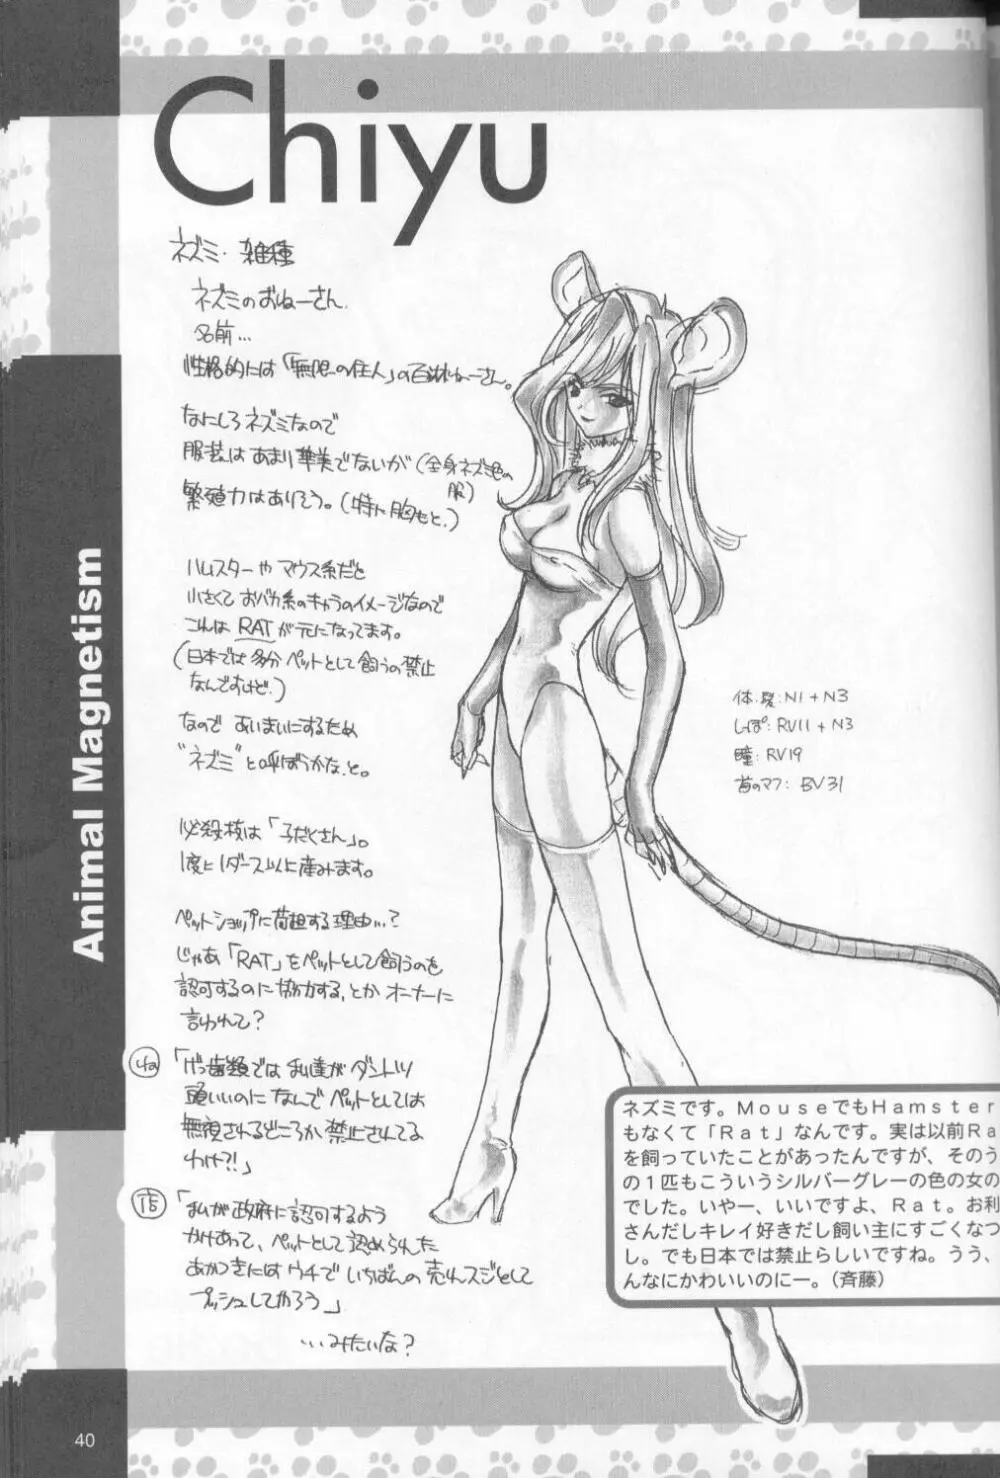 Chiyu
ネズミ・雑種
ネズミのおねーさん。
名前…
性格的には「無限の住人」の百琳ねーさん。
なにしろネズミなので
服装はあまり華美でないが(全身ネズミ色の
服)
繁殖力はありそう。(特に胸もと。)
ハムスターやマウス系だと
小さくておバカ系のキャラのイメージなので
これは RATが元になってます。
(日本では多分ペットとして飼うの禁止
なんですけど。)
なので あいまいにするため
"ネズミ"と呼ぼうかな、と。
必殺技は「子だくさん」。
1度に1ダース以上産みます。
ペットショップに荷担する理由…?
じゃあ「RAT」をペットとして飼うのを
認可するのに協力する、とかオーナーに
言われて?
ね「げっ歯類では私達がダントツ
頭いいのになんでペットとしては
無視されるどころか禁止されてる
わけ?!」
店「私が政府に認可するよう
かけあって、ペットとして認められた
あかつきにはウチでいちばんの売れスジとして
プッシュしてやろう」
…みたいな?
体・髪:N1+N3
しっぽ:RV11+N3
瞳:RV19
首のマフ:BV31
ネズミです。MouseでもHamster
もなくて「Rat」なんです。実は以前Ra
を飼っていたことがあったんですが、そのう
の1匹もこういうシルバーグレーの色の女の
でした。いやー、いいですよ、Rat。お利
さんだしキレイ好きだし飼い主にすごくなつ
し。でも日本では禁止らしいですね。うう、
んなにかわいいのにー。(斉藤)
Animal Magnetism
40